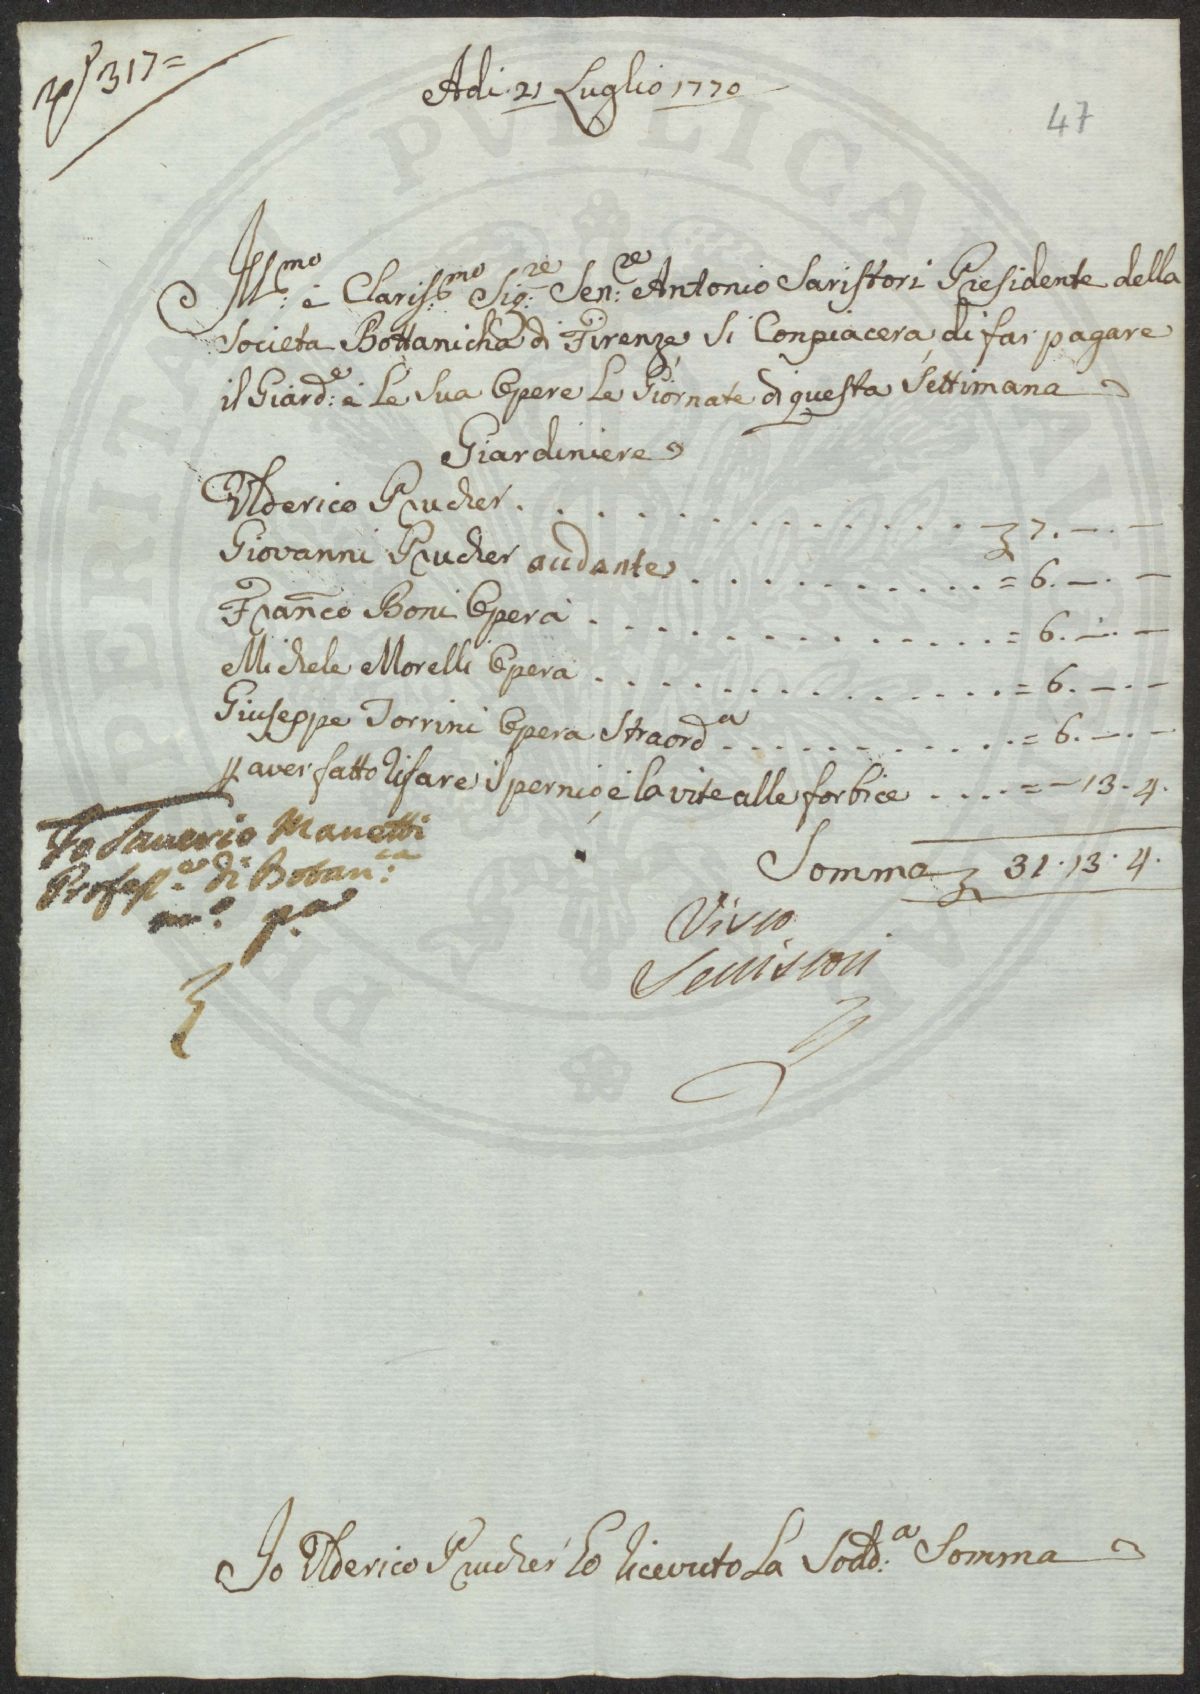 N° 317=
Adi 21 Luglio 1770
47
Ill:mo è Clariss:mo Sig:re Sen:re Antonio Saristori Presidente della
Societa Bottanicha di Firenze si Conpiacera di far pagare
il Giard:e è Le Sua Opere Le Giornate di questa Settimana
Giardiniere
Ulderico Prucher . . . . . . . . . . . . 7. — . —
Giovanni Prucher audante . . . . . . . . . = 6. — . —
Franco Boni Opera . . . . . . . . . . = 6. — . —
Michele Morelli Opera . . . . . . . . . . = 6. — . —
Giuseppe Torrini Opera Straord.a . . . . . . . . = 6. — . —
p aver fatto rifare il pernio, è la vite alle forbice . . . . = — 13. 4.
Somma 31. 13. 4.
Io Saverio Manetti
Profess.e di Botan:ca
m:o p.a
Visto
Seristori
Io Ulderico Prucher ho ricevuto La Sodd:a Somma
PERITATI PVBLICAE